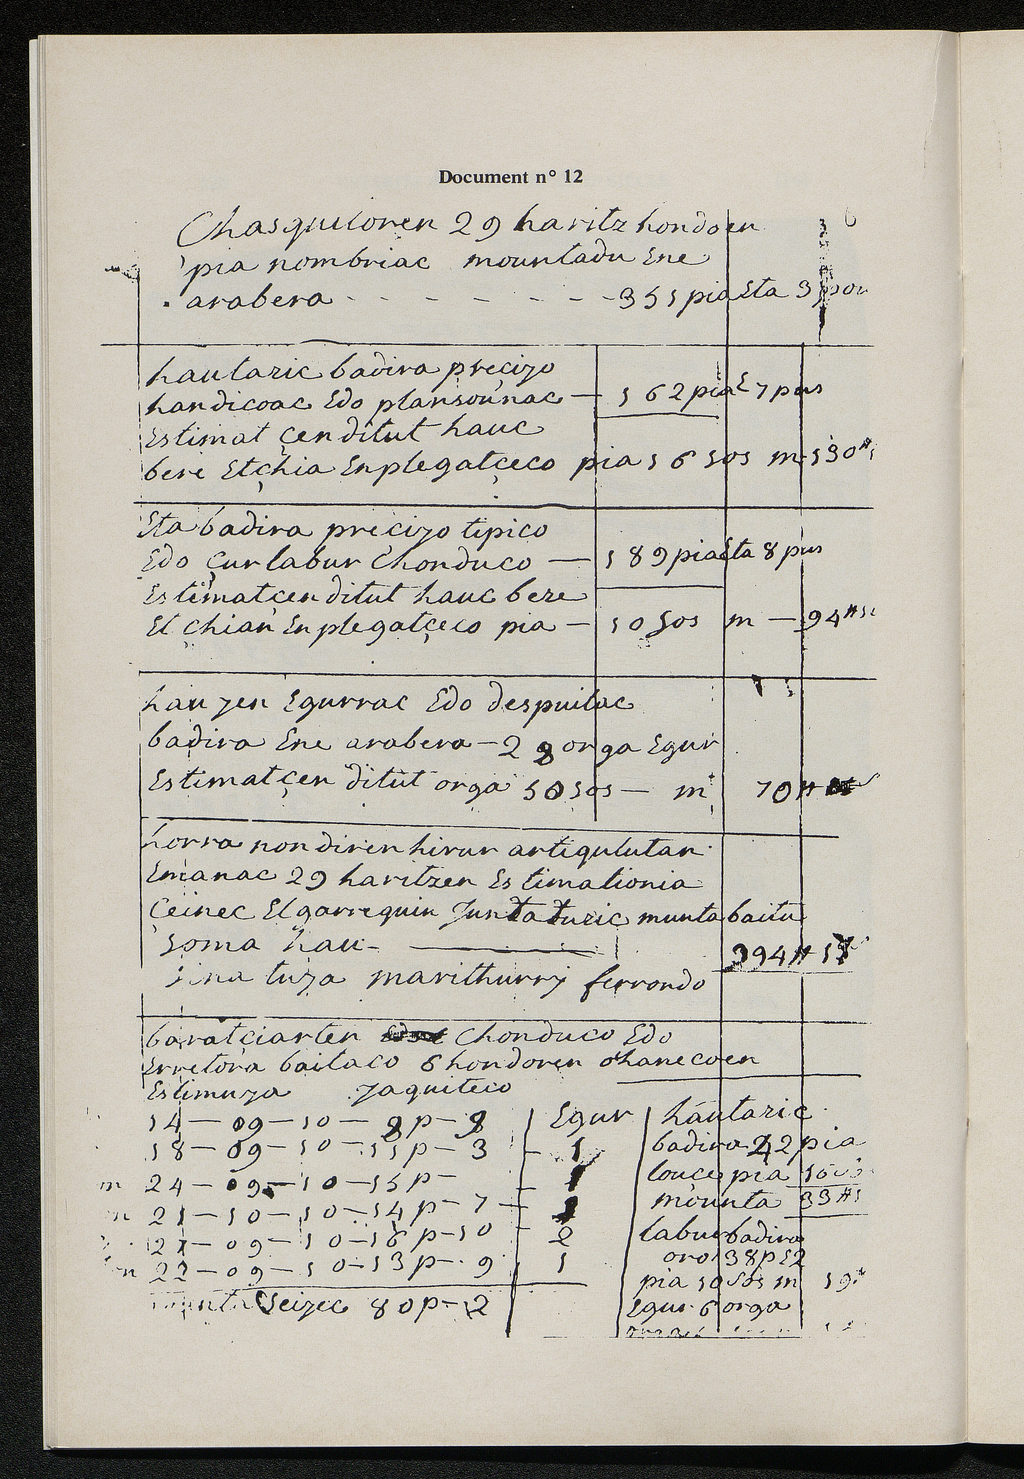 Document n° 12
Chasquitoren 29 haritz hondoen
pia nombriac mountadu Ene
arabera - - - - - - - 351 pia Eta 3 pou
hautaric badira precizo
handicoac Edo plansounac — 162 pia E 7 pus
Estimatçen ditut hauc
bere Etchia Enplegatçeco pia 16 sos m 130#
Eta badira precizo tipico
Edo çur labur Chonduco — 189 pia Eta 8 pus
Estimatçen ditut hauc bere
Etchian Enplegatçeco pia — 10 sos m — 94#
hauzen Egurrac Edo despuilac
badira Ene arabera — 28 orga Egur
Estimatçen ditut orga 50 sos — mt 70#
horra non diren hirur artiqulutan
Emanac 29 haritzen Estimationia
Ceinec Elgarrequin Juntaturic munta baitu
soma hau — 294#
marithurry ferrondo
baratçiarten Chonduco Edo
Erretora baitaco 6 hondoren ohanecoen
Estimuza Jaquiteco
14 — 09 — 10 — 8p — 8 | Egur | hautaric
18 — 09 — 10 — 11p — 3 — 1 badira 42 pia
m 24 — 09 — 10 — 15p — 1 louçe pia 16
21 — 10 — 10 — 14p — 7 — 1 mounta 33#
21 — 09 — 10 — 16p — 10 2 labur badira
22 — 09 — 10 — 13p — 9 1 oro 38p E2
pia 10 sos m 19#
Seizec 80p — 2 Egur 6 orga